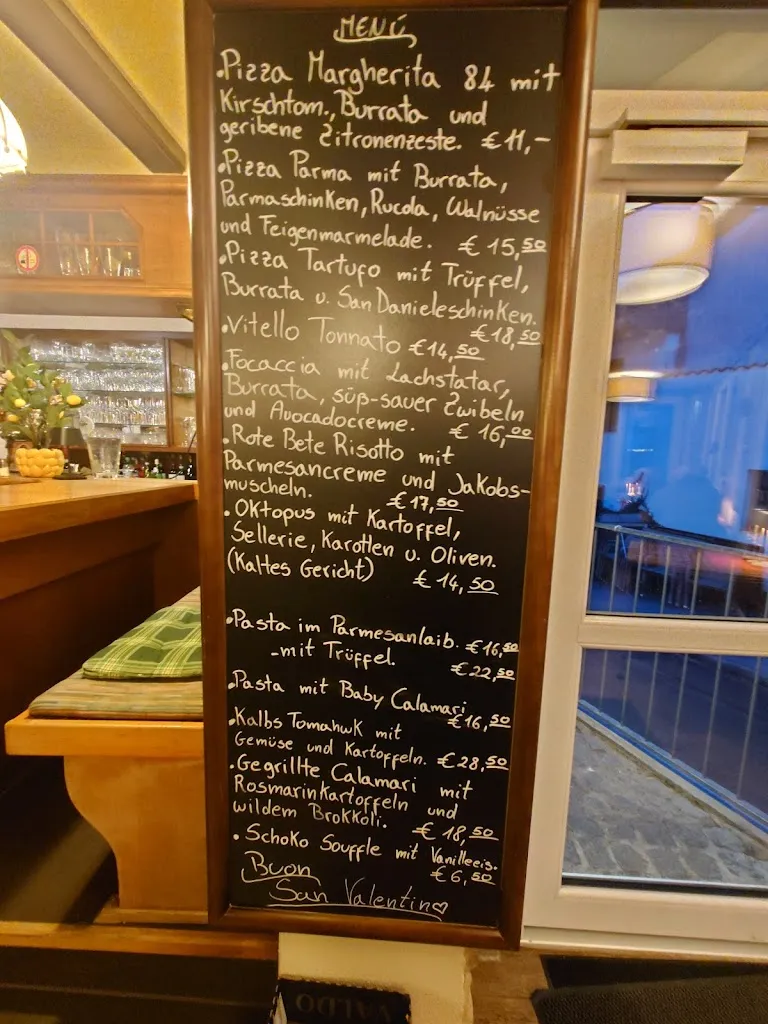 MENÚ
•Pizza Margherita 84 mit
Kirschtom., Burrata und
geribene Zitronenzeste. €11,-
•Pizza Parma mit Burrata,
Parmaschinken, Rucola, Walnüsse
und Feigenmarmelade. €15,50
•Pizza Tartufo mit Trüffel,
Burrata u. San Danieleschinken.
€18,50
•Vitello Tonnato €14,50
•Focaccia mit Lachstatar,
Burrata, süß-sauer Zwibeln
und Avocadocreme. €16,00
•Rote Bete Risotto mit
Parmesancreme und Jakobs-
muscheln. €17,50
•Oktopus mit Kartoffel,
Sellerie, Karotten u. Oliven.
(Kaltes Gericht) €14,50
•Pasta im Parmesanlaib. €16,50
-mit Trüffel. €22,50
•Pasta mit Baby Calamari
€16,50
•Kalbs Tomahwk mit
Gemüse und Kartoffeln. €28,50
•Gegrillte Calamari mit
Rosmarinkartoffeln und
wildem Brokkoli. €18,50
•Schoko Souffle mit Vanilleeis.
€6,50
Buon
San Valentino
VALDO